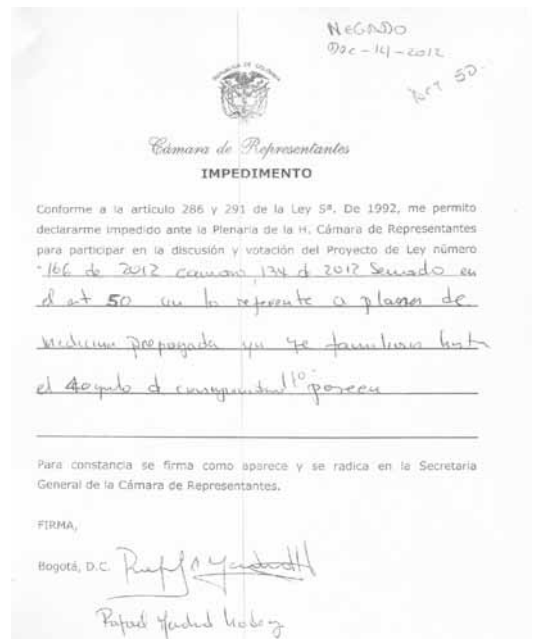 NEGADO
Dic-14-2012
Art 50.
REPUBLICA DE COLOMBIA
Cámara de Representantes
IMPEDIMENTO
Conforme a la artículo 286 y 291 de la Ley 5ª. De 1992, me permito
declararme impedido ante la Plenaria de la H. Cámara de Representantes
para participar en la discusión y votación del Proyecto de Ley número
166 de 2012 camara, 134 d 2012 Senado en
el art 50 en lo referente a planes de
medicina prepagada ya que familiares hasta
el 4o grado d consanguinidad lo poseen
Para constancia se firma como aparece y se radica en la Secretaria
General de la Cámara de Representantes.
FIRMA,
Bogotá, D.C.
Rafael